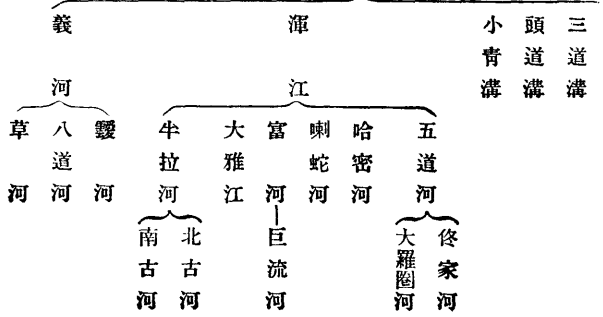 三道溝
頭道溝
小青溝
渾江
五道河
佟家河
大羅圈河
哈密河
喇蛇河
富河
巨流河
大雅江
牛拉河
北古河
南古河
義河
靉河
八道河
草河